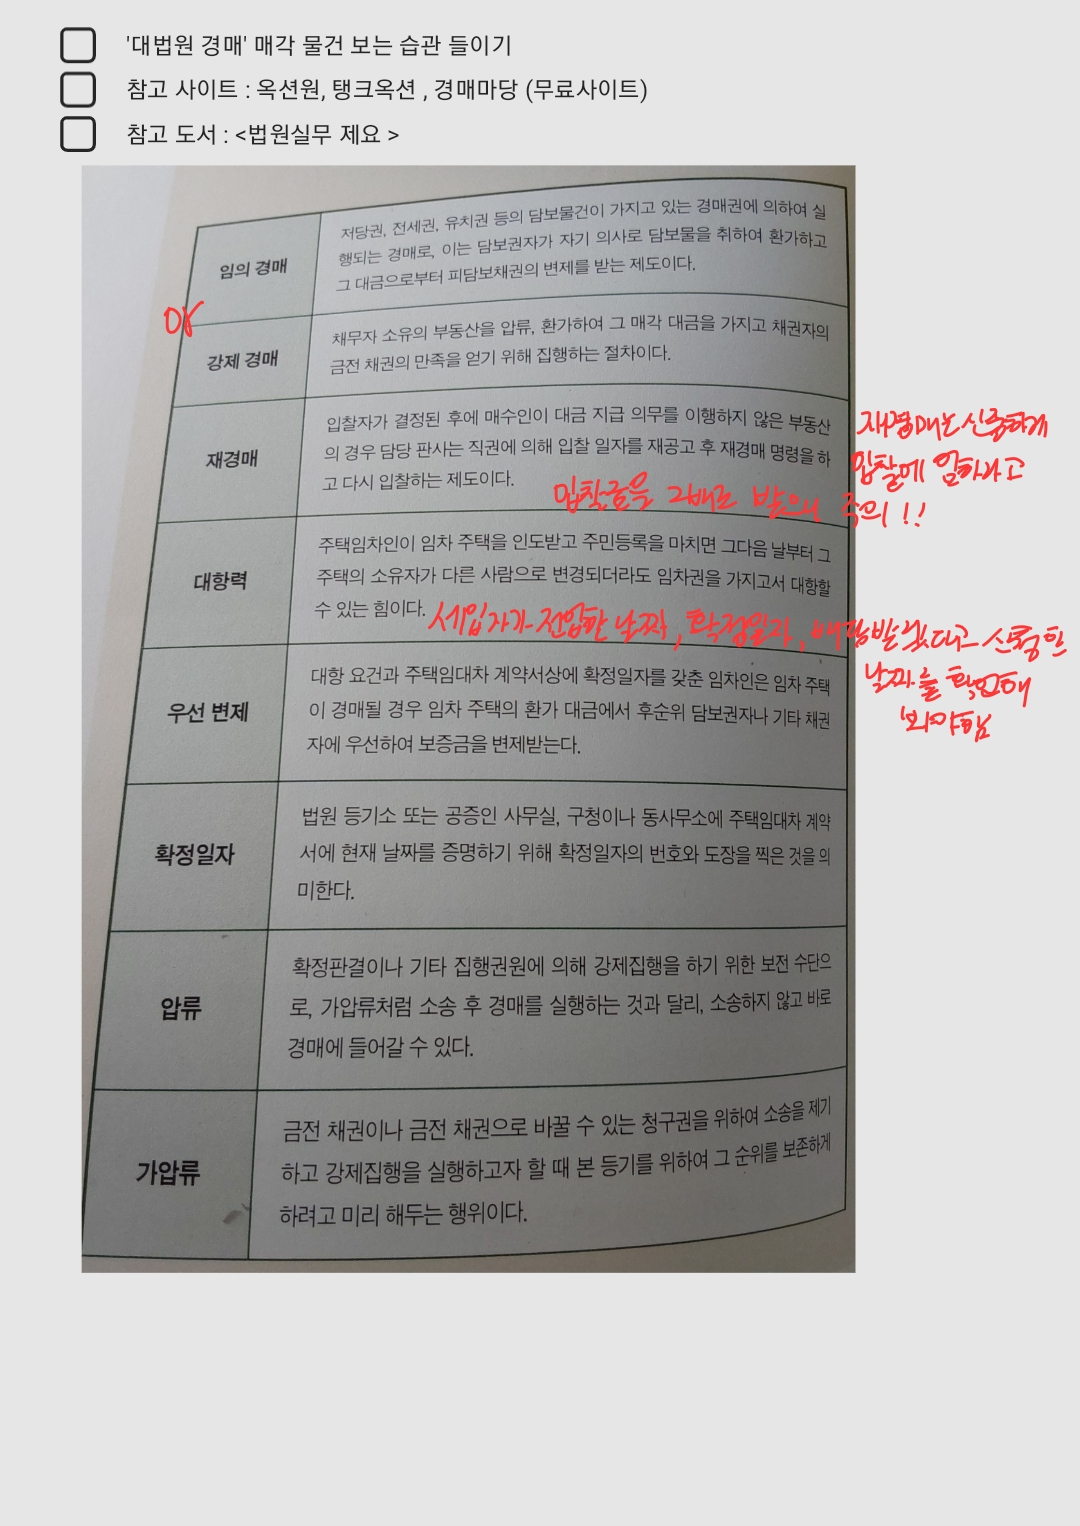 '대법원 경매' 매각 물건 보는 습관 들이기
참고 사이트 : 옥션원, 탱크옥션 , 경매마당 (무료사이트)
참고 도서 : <법원실무 제요 >
임의 경매
저당권, 전세권, 유치권 등의 담보물건이 가지고 있는 경매권에 의하여 실
행되는 경매로, 이는 담보권자가 자기 의사로 담보물을 취하여 환가하고
그 대금으로부터 피담보채권의 변제를 받는 제도이다.
or
강제 경매
채무자 소유의 부동산을 압류, 환가하여 그 매각 대금을 가지고 채권자의
금전 채권의 만족을 얻기 위해 집행하는 절차이다.
재경매
입찰자가 결정된 후에 매수인이 대금 지급 의무를 이행하지 않은 부동산
의 경우 담당 판사는 직권에 의해 입찰 일자를 재공고 후 재경매 명령을 하
고 다시 입찰하는 제도이다.
재경매는 신중하게
입찰에 임하라고
입찰금을 2배로 받으니 주의 !!
대항력
주택임차인이 임차 주택을 인도받고 주민등록을 마치면 그다음 날부터 그
주택의 소유자가 다른 사람으로 변경되더라도 임차권을 가지고서 대항할
수 있는 힘이다.
세입자가 전입한 날짜, 확정일자, 배당받겠다고 신청한
날짜를 확인해
봐야함
우선 변제
대항 요건과 주택임대차 계약서상에 확정일자를 갖춘 임차인은 임차 주택
이 경매될 경우 임차 주택의 환가 대금에서 후순위 담보권자나 기타 채권
자에 우선하여 보증금을 변제받는다.
확정일자
법원 등기소 또는 공증인 사무실, 구청이나 동사무소에 주택임대차 계약
서에 현재 날짜를 증명하기 위해 확정일자의 번호와 도장을 찍은 것을 의
미한다.
압류
확정판결이나 기타 집행권원에 의해 강제집행을 하기 위한 보전 수단으
로, 가압류처럼 소송 후 경매를 실행하는 것과 달리, 소송하지 않고 바로
경매에 들어갈 수 있다.
가압류
금전 채권이나 금전 채권으로 바꿀 수 있는 청구권을 위하여 소송을 제기
하고 강제집행을 실행하고자 할 때 본 등기를 위하여 그 순위를 보존하게
하려고 미리 해두는 행위이다.